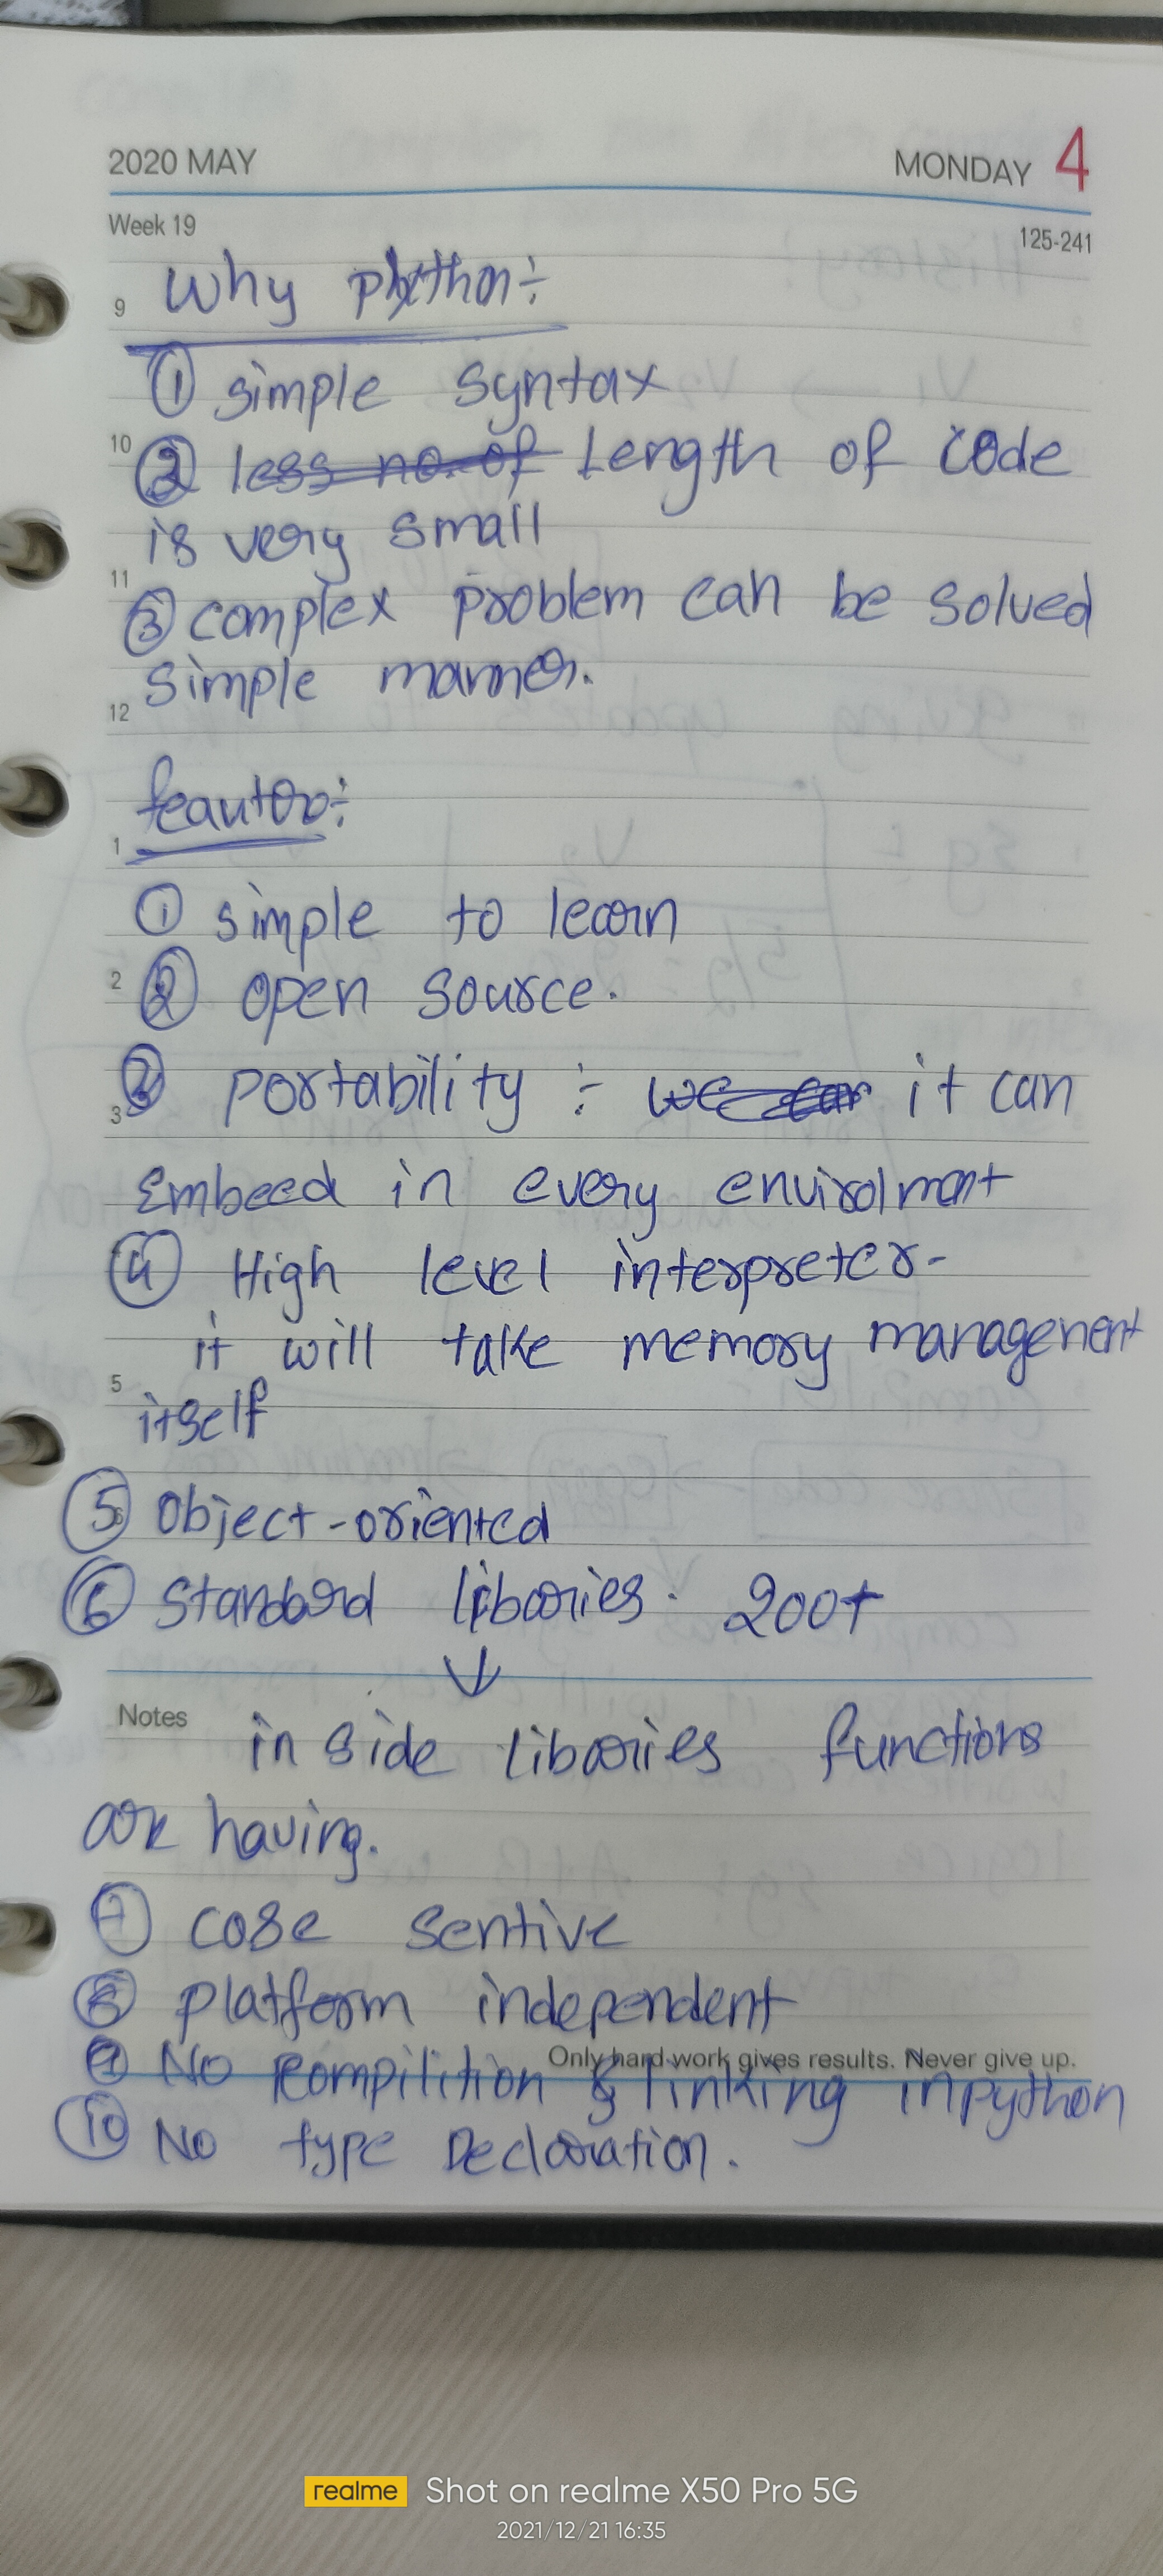 2020 MAY MONDAY 4
Week 19 125-241
9 Why python:
① simple syntax
10 ② less no. of Length of code
is very small
11
③ complex problem can be solved
simple manner.
12
feauter:
1
① simple to learn
2 ② open source.
3 ③ portability : we can it can
Embeed in every envirolment
④ High level interpreter-
it will take memory management
5
itself
⑤ object-oriented
⑥ standard libraries. 200+
↓
Notes in side libraries functions
are having.
⑦ case sentive
⑧ platform independent
Only hard work gives results. Never give up.
⑨ No compilition & linking in python
⑩ No type Declaration.
realme Shot on realme X50 Pro 5G
2021/12/21 16:35